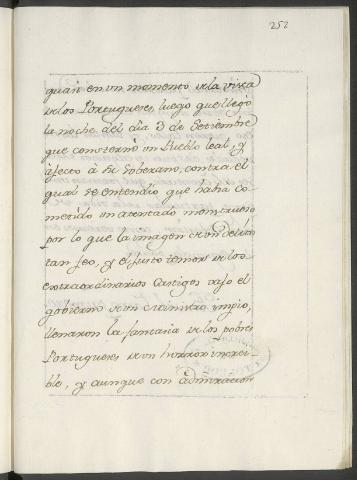 252
quası en un momento dela vista
delos Portugueses, luego que llegó
la noche del dia 3 de Setiembre
que consternó un Pueblo leal, y
afecto à su Soberano, contra el
qual se entendio que havia co-
metido un atentado monstruoso
por lo que la imagen de un delito
tan feo, y el justo temor delos
extraordinarios Castigos vajo el
govierno de un ministro impio,
llenaron la fantasia delos pobres
Portugueses de un horror increi-
ble, y aunque con admiracion